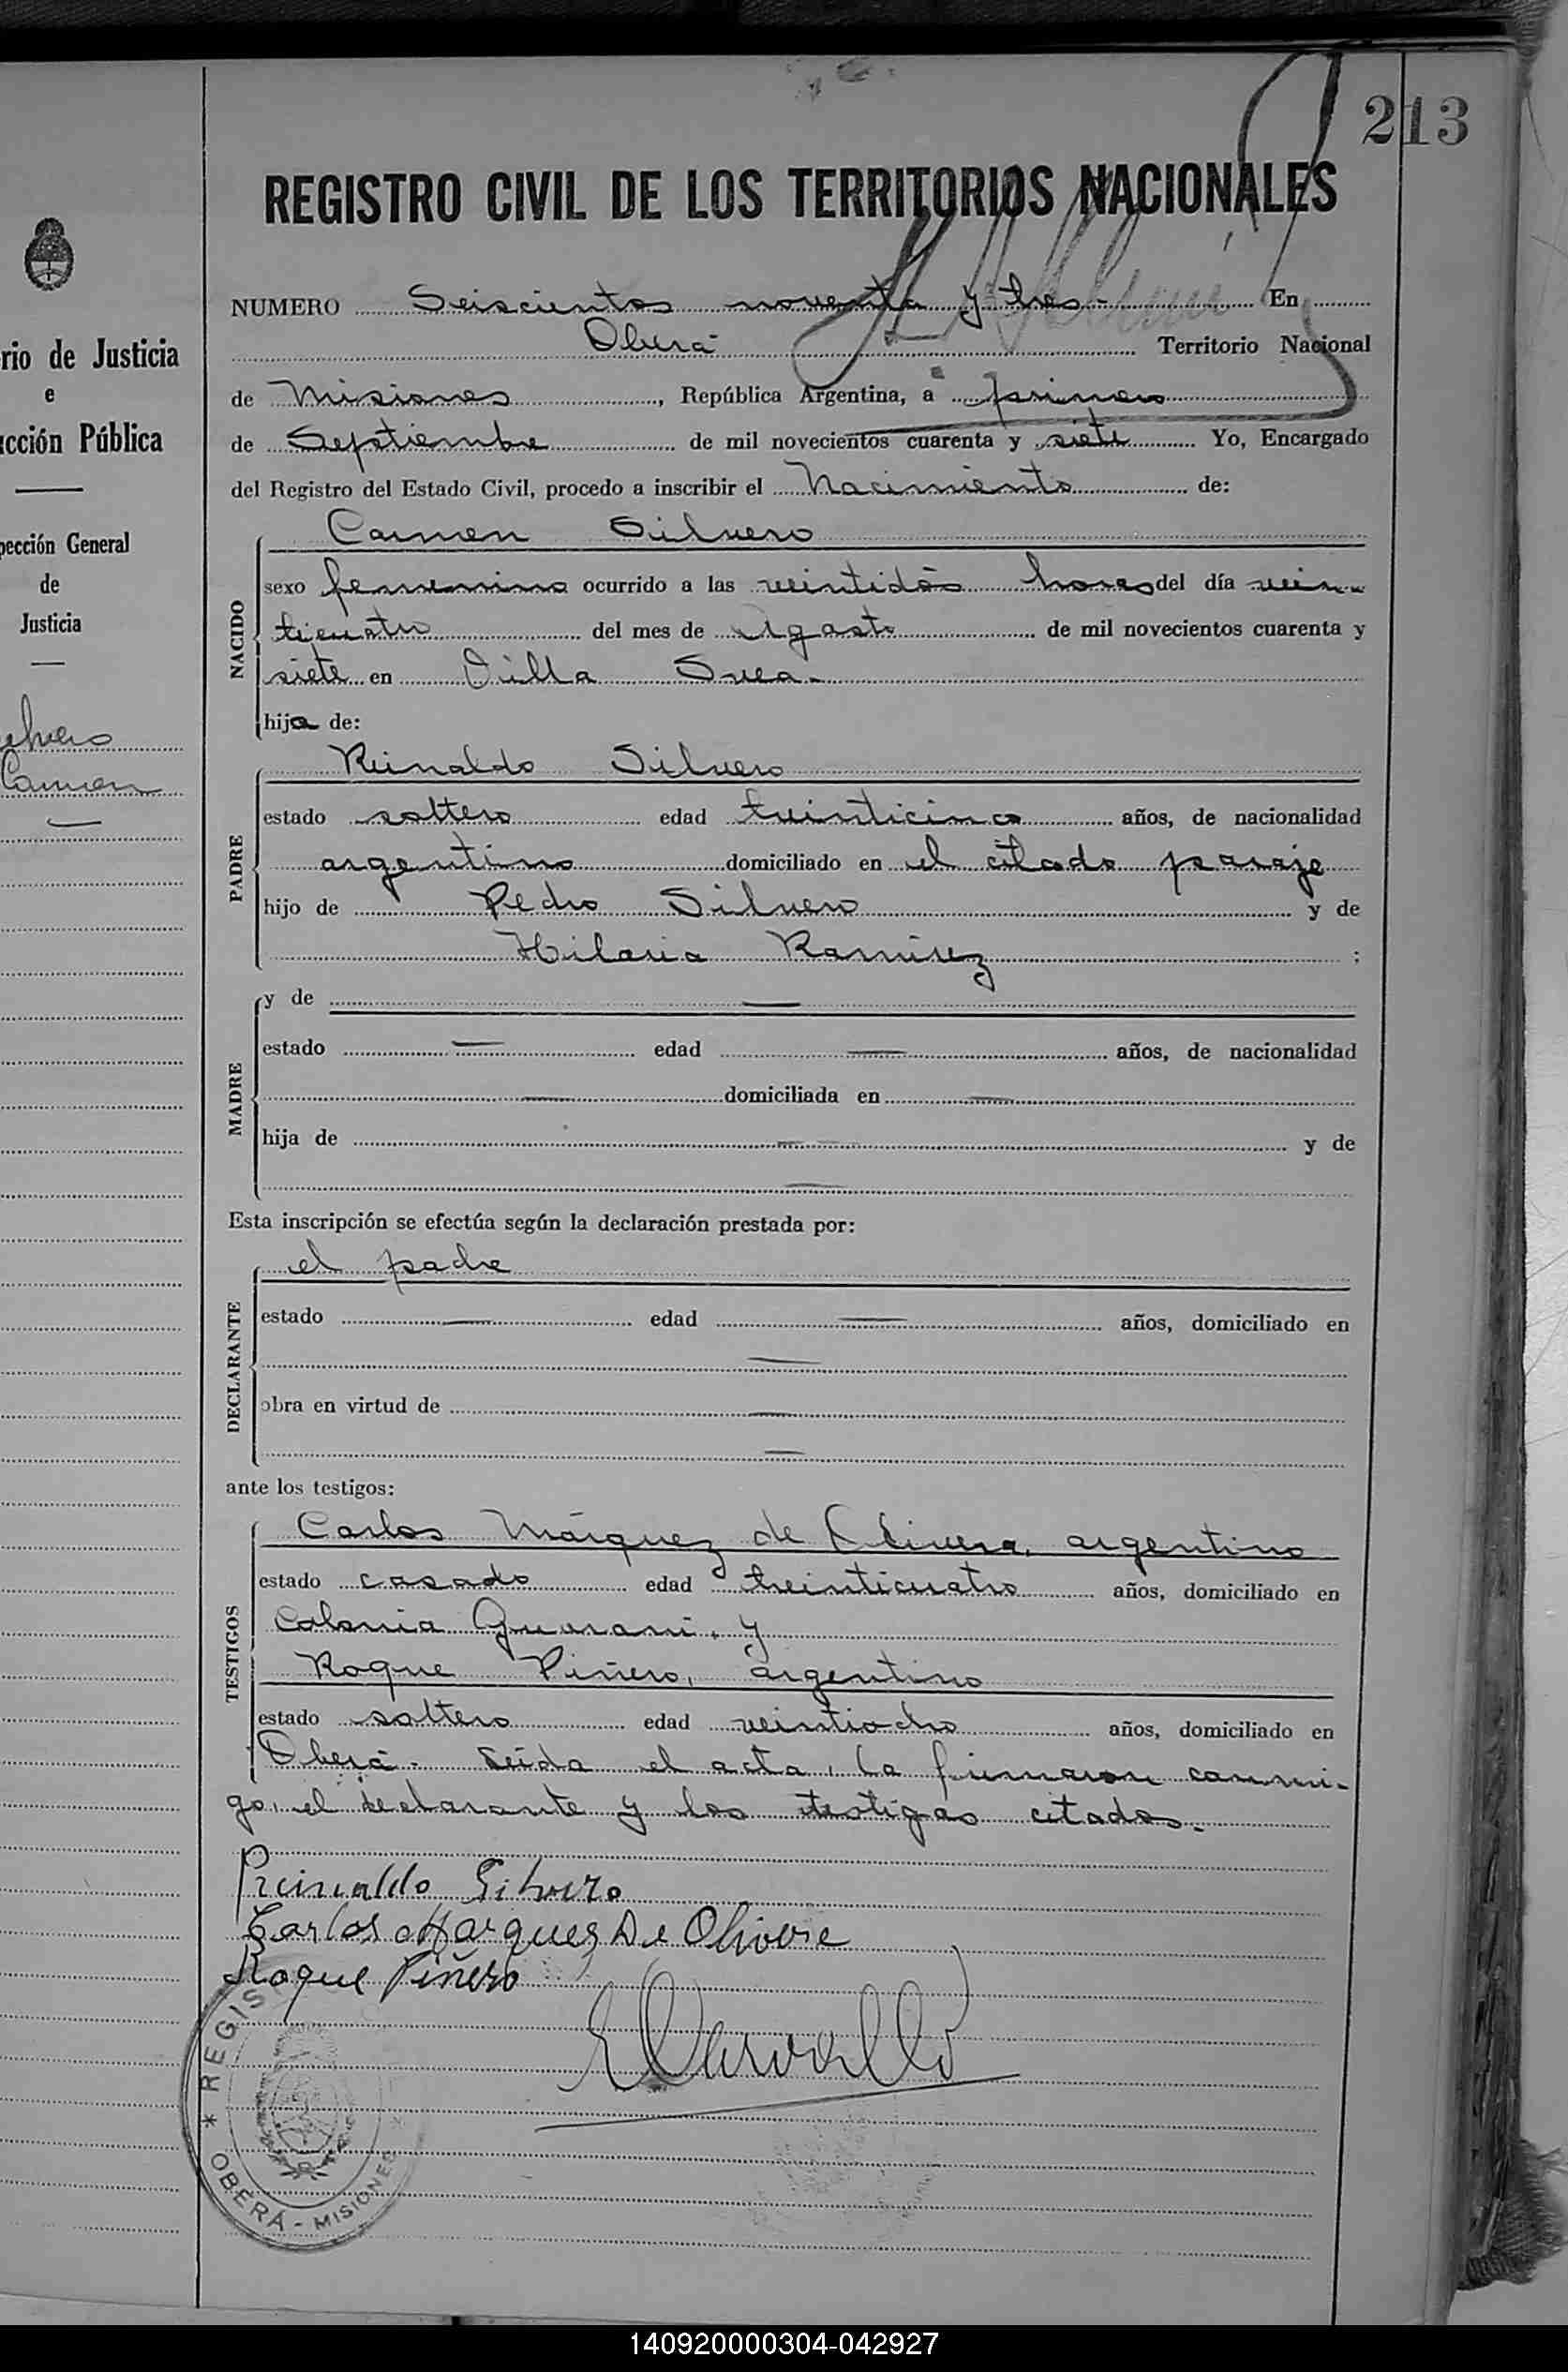 213
REGISTRO CIVIL DE LOS TERRITORIOS NACIONALES
NUMERO Seiscientos noventa y tres - En
Oberá Territorio Nacional
de Misiones, República Argentina, a primero
de Septiembre de mil novecientos cuarenta y siete Yo, Encargado
del Registro del Estado Civil, procedo a inscribir el Nacimiento de:
NACIDO
Carmen Silvero
sexo femenino ocurrido a las veintidós horas del día vein-
ticuatro del mes de Agosto de mil novecientos cuarenta y
siete en Villa Svea.
hija de:
PADRE
Reinaldo Silvero
estado soltero edad treinticinco años, de nacionalidad
argentino domiciliado en el citado paraje
hijo de Pedro Silvero y de
Hilaria Ramírez ;
MADRE
y de —
estado — edad — años, de nacionalidad
— domiciliada en —
hija de — y de
—
Esta inscripción se efectúa según la declaración prestada por:
DECLARANTE
el padre
estado — edad — años, domiciliado en
—
obra en virtud de —
—
ante los testigos:
TESTIGOS
Carlos Márquez de Olivera, argentino
estado casado edad treinticuatro años, domiciliado en
Colonia Guaraní, y
Roque Piñero, argentino
estado soltero edad veintiocho años, domiciliado en
Oberá.- Leída el acta, la firmaron conmi-
go, el declarante y los testigos citados.-
Reinaldo Silvero
Carlos Marquez De Olivera
Roque Piñero
REGIS
OBERÁ - MISIONES
rio de Justicia
e
cción Pública
pección General
de
Justicia
Silvero
Carmen
140920000304-042927